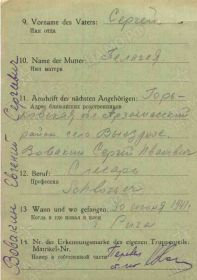 9. Vorname des Vaters: Сергей
Имя отца
10. Name der Mutter: Пелагея
Имя матери
11. Anschrift des nächsten Angehörigen: Горь-
Адрес ближайших родственников
ковская обл Арзамасский
район село Выездное
Вовакин Сергей Иванович
12. Beruf: Слесарь
Профессия
Schlosser
13. Wann und wo gefangen: 30 июня 1941
Когда и где попал в плен
Рига
14. Nr. der Erkennungsmarke des eigenen Truppenteils:
Matrikel-Nr.
Номер в собственной части
Евгений Сергеевич